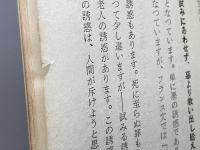 試みにあわせず、悪より救い出し給え
となつています。単に悪の誘惑であ
なつていますが、フランス文では一
誘惑もあります。死に至らぬ罪も
つて少し違いますが――試みる誘
老人の誘惑があります。この誘
の誘惑は、人間が斥けようと思